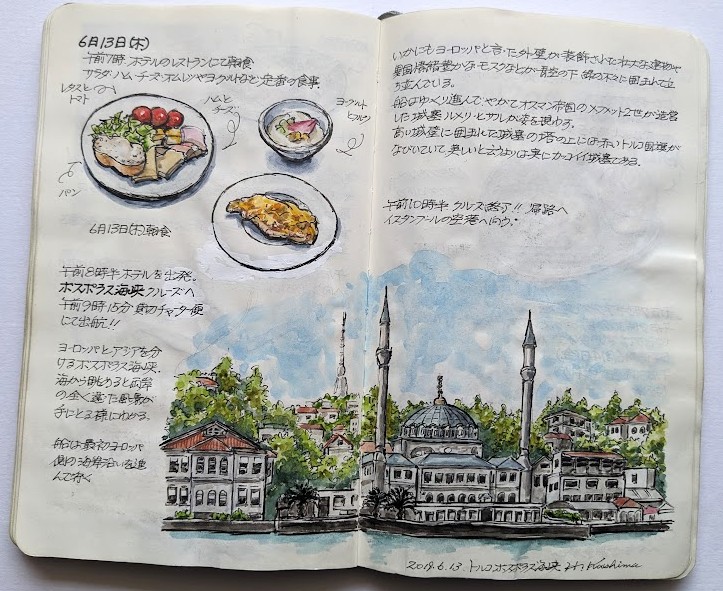 6月13日(木)
午前7時 ホテルのレストランにて朝食
サラダ・ハム・チーズ・オムレツやヨーグルトなど定番の食事
レタスと
トマト
ハムと
チーズ
ヨーグルト
パン
6月13日(木)朝食
午前8時半ホテルを出発。
ボスポラス海峡クルーズへ
午前9時15分 貸切チャーター便
にて出航!!
ヨーロッパとアジアを分
けるボスポラス海峡。
海から眺めると両岸
の全く違った風景が
手にとる様にわかる。
船は最初ヨーロッパ
側の海岸沿いを進
んで行く
いかにもヨーロッパと言った外壁が装飾された壮大な建物や
異国情緒豊かなモスクなどが青空の下 緑の木々に囲まれて立
ち並んでいる。
船はゆっくり進んでやがてオスマン帝国のメフメット2世が造営
した城塞ルメリ・ヒサルが姿を現わる。
高い城壁に囲まれた城塞の塔の上には赤いトルコ国旗が
なびいていて 美しいと云うよりは実にカッコイイ城塞である。
午前10時半 クルーズ終了!! 帰路へ
イスタンブールの空港へ向う・
2019.6.13 トルコボスポラス海峡